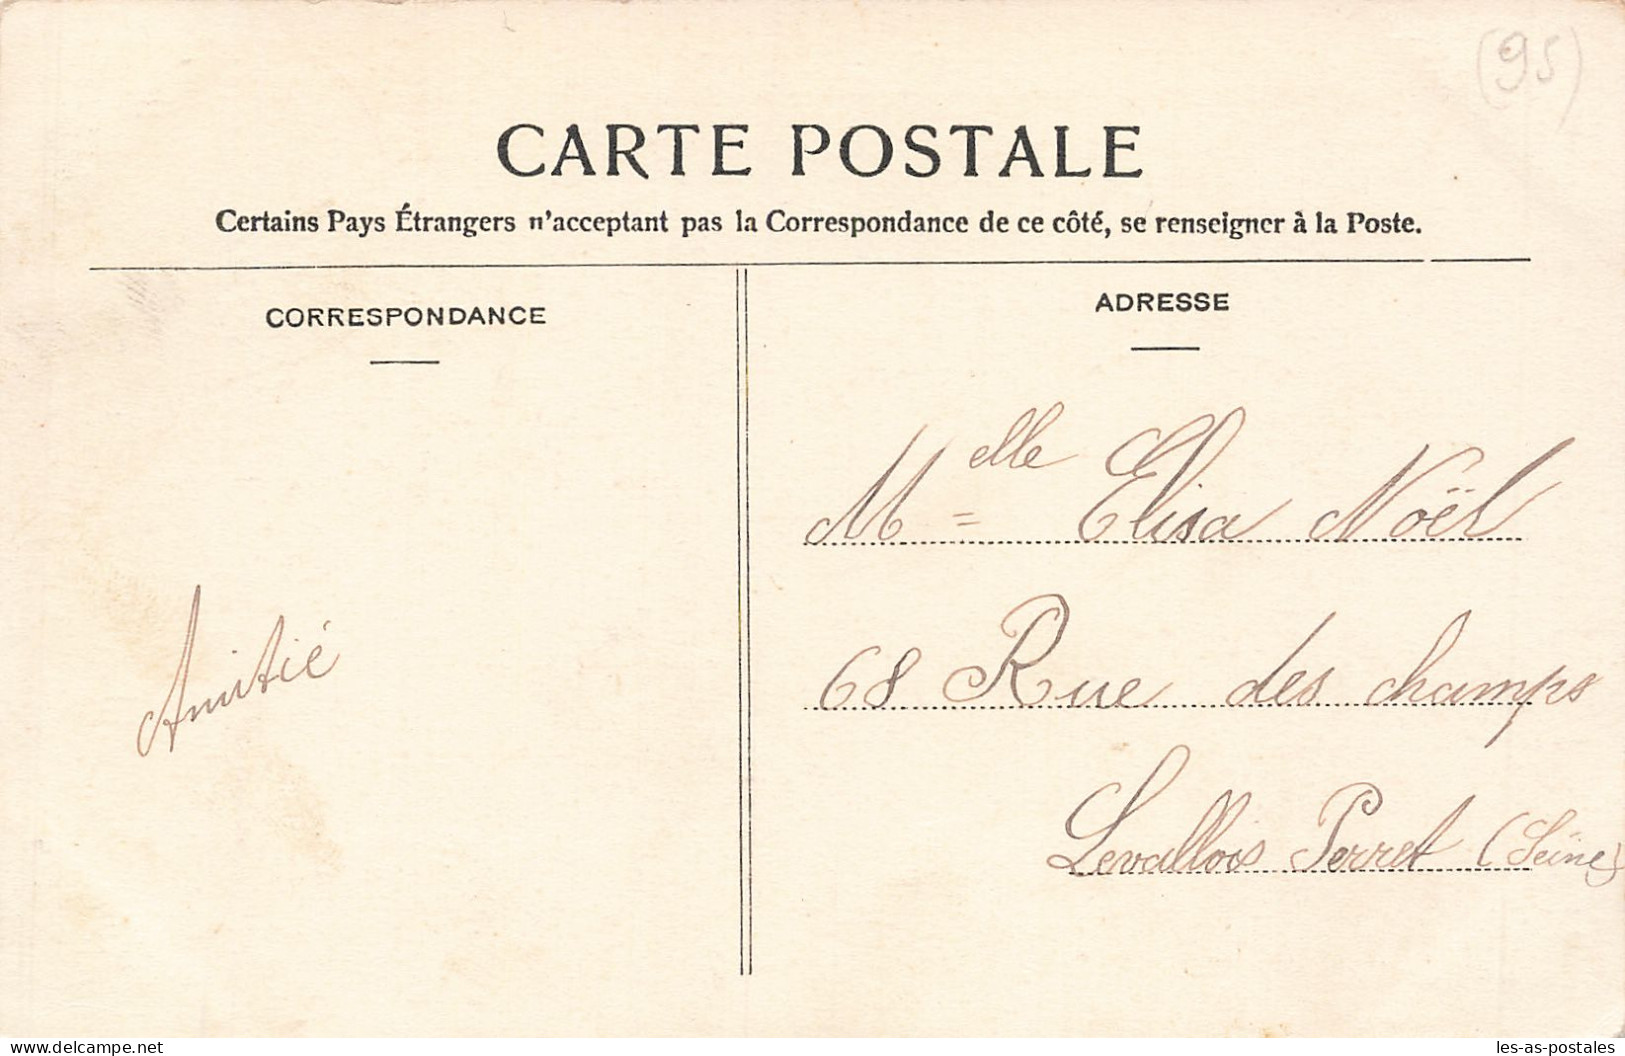 (95)
CARTE POSTALE
Certains Pays Étrangers n'acceptant pas la Correspondance de ce côté, se renseigner à la Poste.
CORRESPONDANCE
Amitié
ADRESSE
Melle Elisa Noël
68 Rue des champs
Levallois Perret (Seine)
www.delcampe.net
les-as-postales